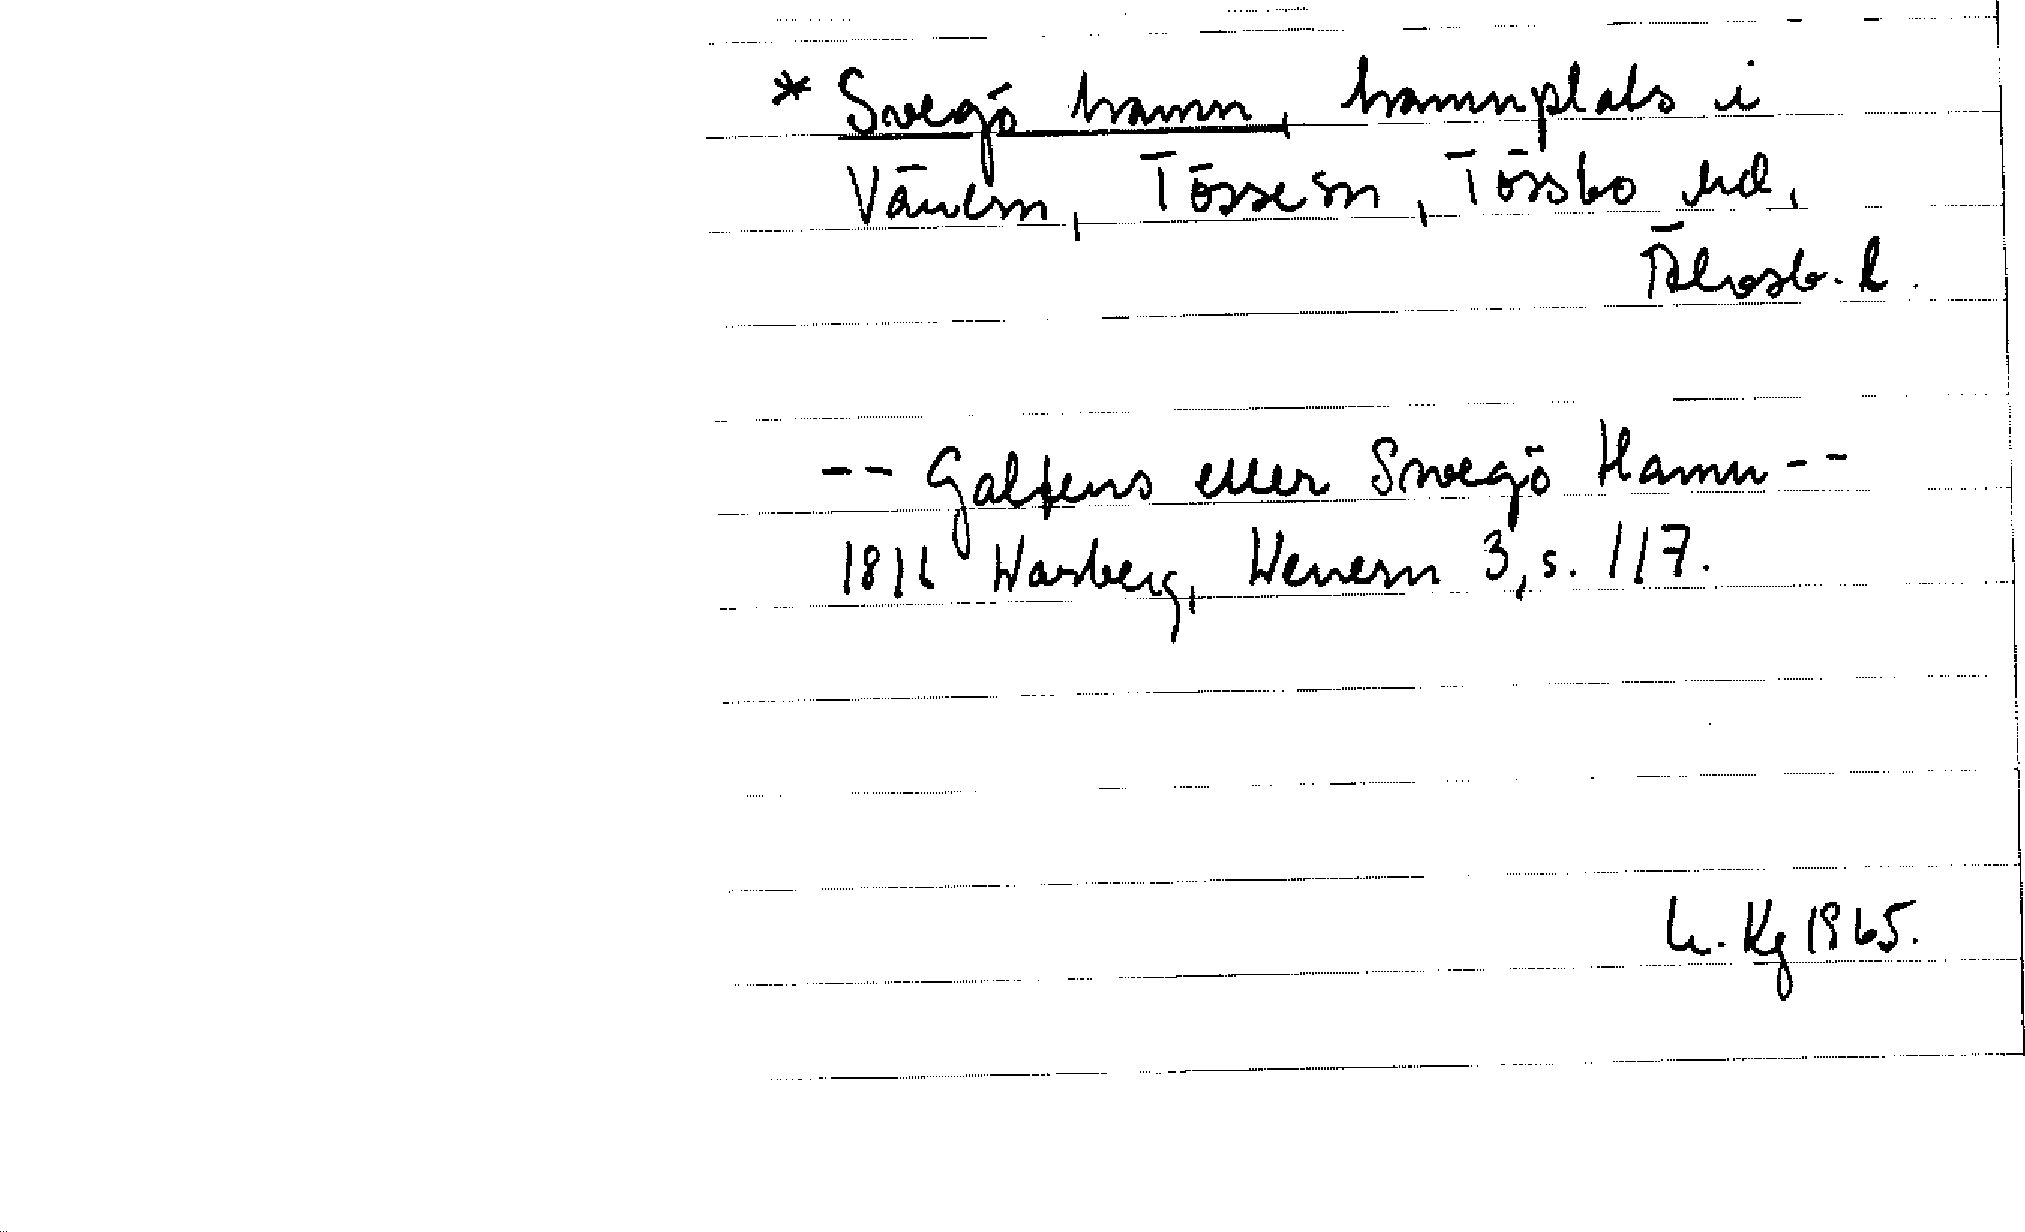 * Svegö hamn, hamnplats i
Vänern, Tössesn, Tössbo hd,
Älvsb. l.
-- Galtens eller Svegö Hamn --
1816 Warberg, Wenern 3, s. 117.
L. Kg 1965.